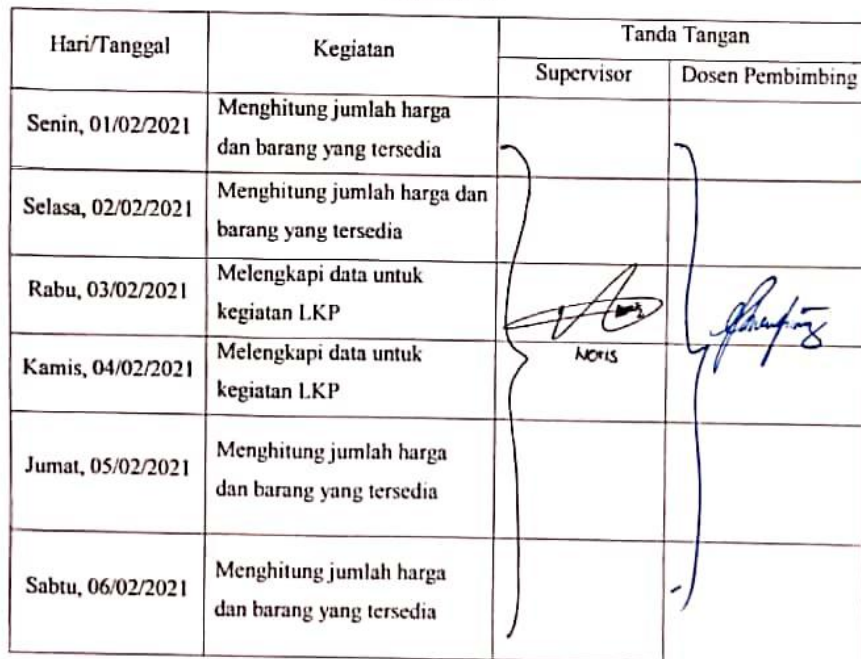 Hari/Tanggal
Kegiatan
Tanda Tangan
Supervisor
Dosen Pembimbing
Senin, 01/02/2021
Menghitung jumlah harga
dan barang yang tersedia
Selasa, 02/02/2021
Menghitung jumlah harga dan
barang yang tersedia
Rabu, 03/02/2021
Melengkapi data untuk
kegiatan LKP
Noris
Kamis, 04/02/2021
Melengkapi data untuk
kegiatan LKP
Jumat, 05/02/2021
Menghitung jumlah harga
dan barang yang tersedia
Sabtu, 06/02/2021
Menghitung jumlah harga
dan barang yang tersedia